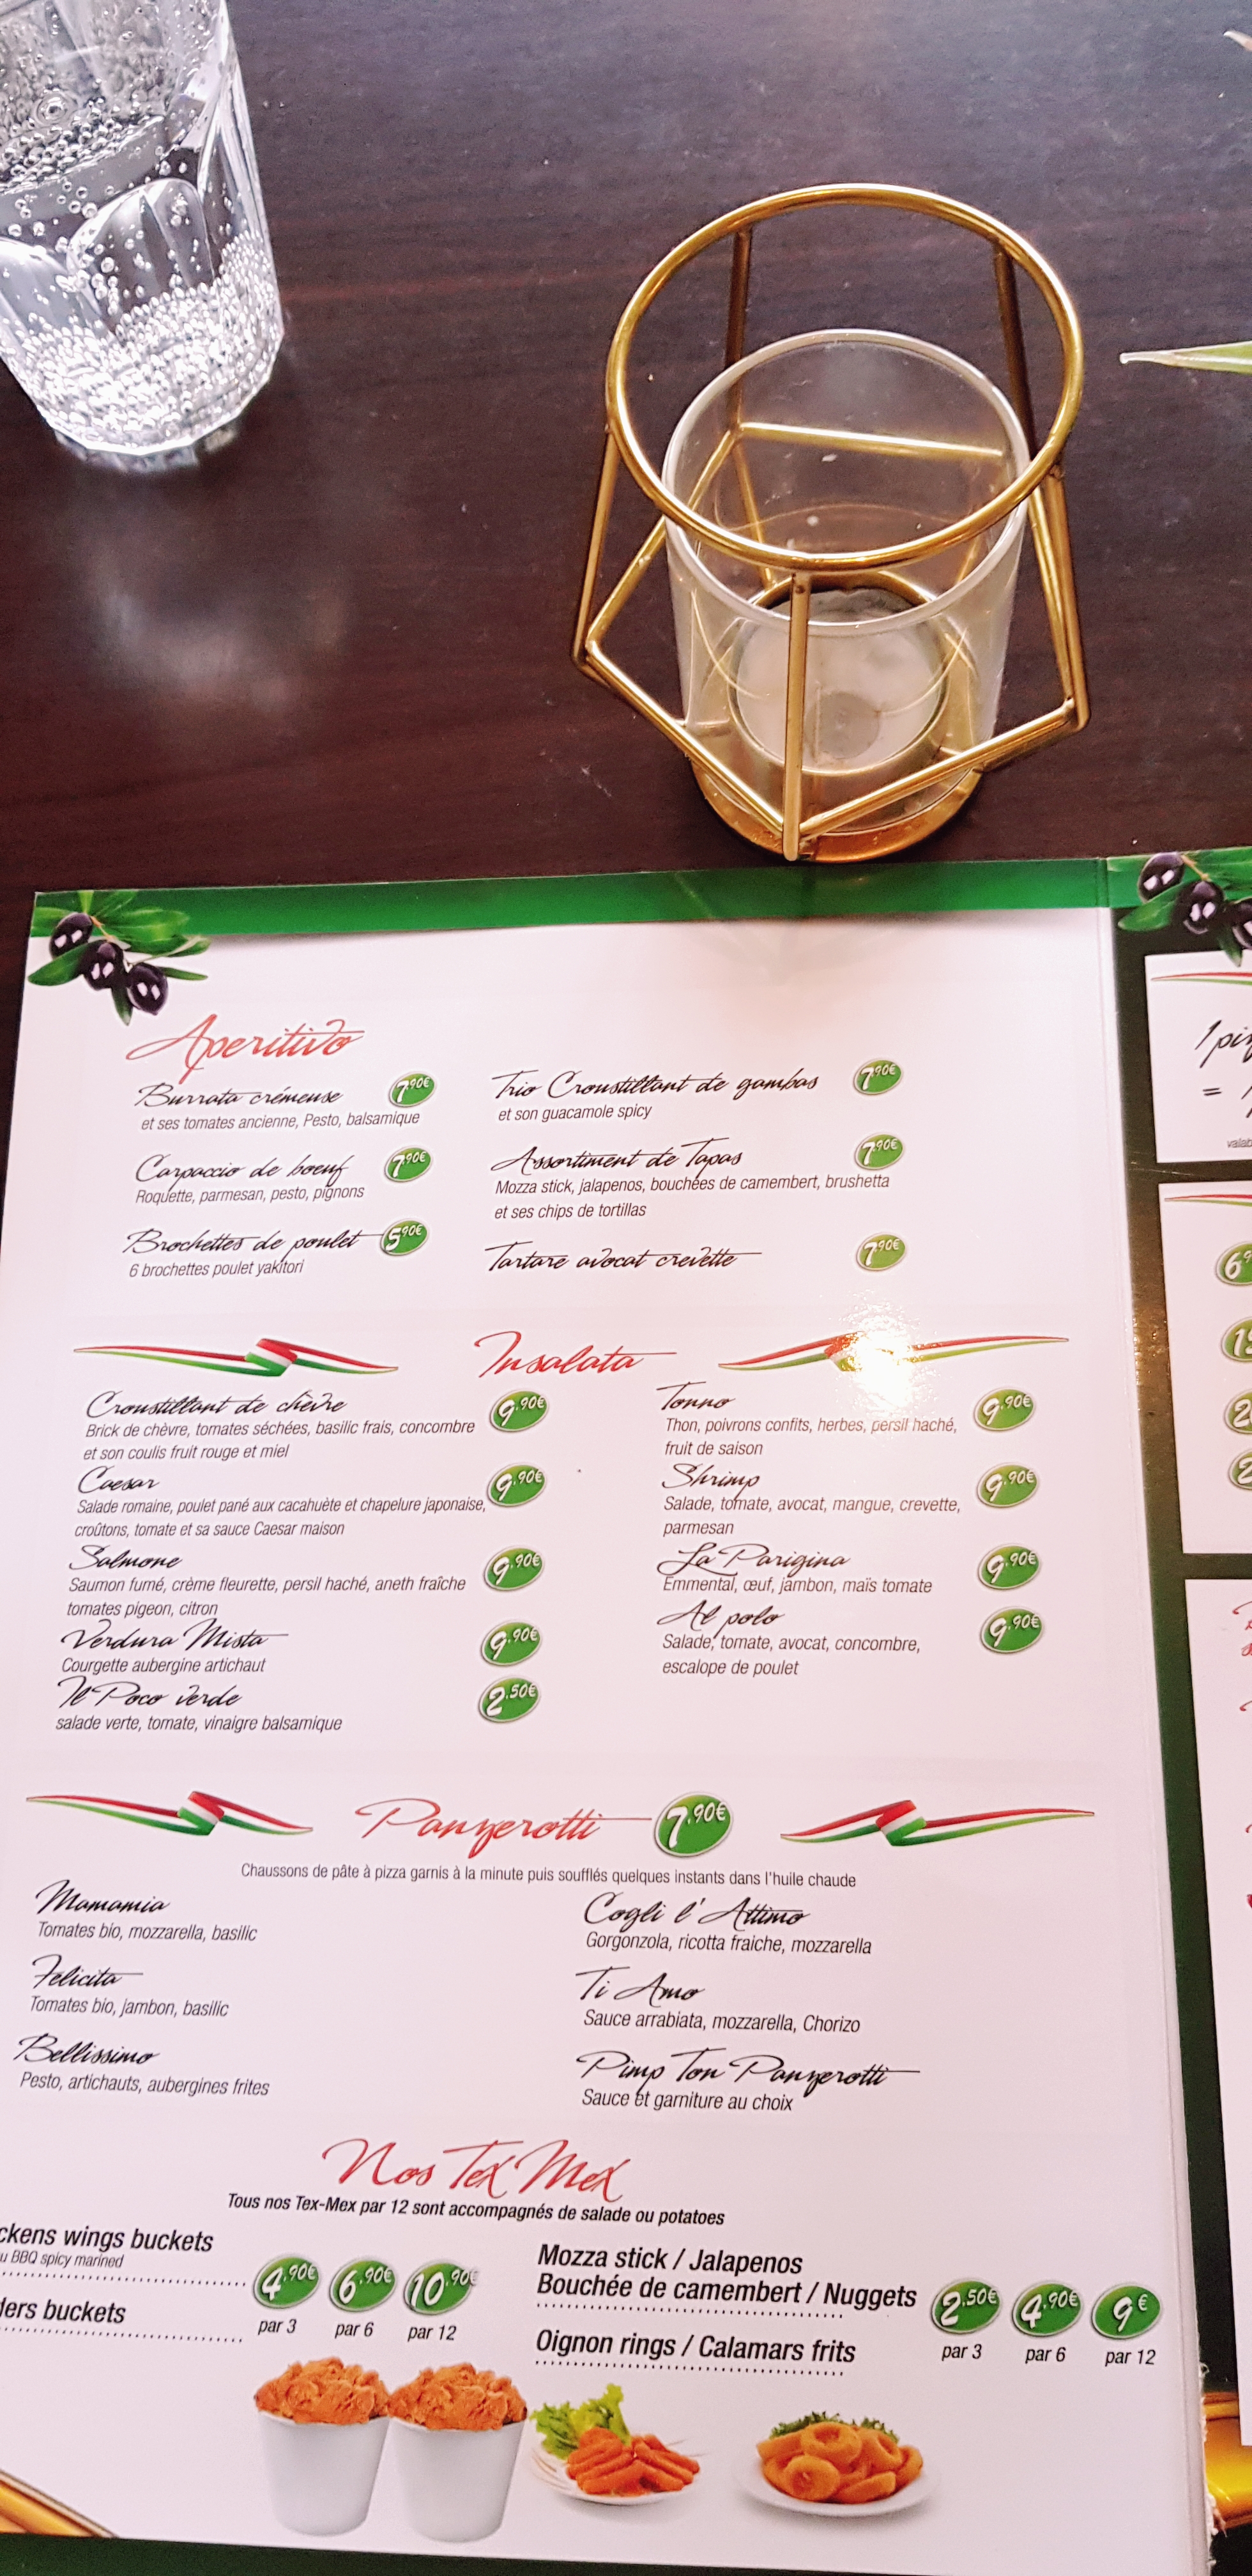 Aperitivo
Burrata crémeuse 7,90€
et ses tomates ancienne, Pesto, balsamique
Carpaccio de boeuf 7,90€
Roquette, parmesan, pesto, pignons
Brochettes de poulet 5,90€
6 brochettes poulet yakitori
Trio Croustillant de gambas 7,90€
et son guacamole spicy
Assortiment de Tapas 7,90€
Mozza stick, jalapenos, bouchées de camembert, brushetta
et ses chips de tortillas
Tartare avocat crevette 7,90€
Insalata
Croustillant de chèvre 9,90€
Brick de chèvre, tomates séchées, basilic frais, concombre
et son coulis fruit rouge et miel
Caesar 9,90€
Salade romaine, poulet pané aux cacahuète et chapelure japonaise,
croûtons, tomate et sa sauce Caesar maison
Salmone 9,90€
Saumon fumé, crème fleurette, persil haché, aneth fraîche
tomates pigeon, citron
Verdura Mista 9,90€
Courgette aubergine artichaut
Il Poco verde 2,50€
salade verte, tomate, vinaigre balsamique
Tonno 9,90€
Thon, poivrons confits, herbes, persil haché,
fruit de saison
Shrimp 9,90€
Salade, tomate, avocat, mangue, crevette,
parmesan
La Parigina 9,90€
Emmental, œuf, jambon, maïs tomate
Al polo 9,90€
Salade, tomate, avocat, concombre,
escalope de poulet
Panzerotti 7,90€
Chaussons de pâte à pizza garnis à la minute puis soufflés quelques instants dans l'huile chaude
Mamamia
Tomates bio, mozzarella, basilic
Felicita
Tomates bio, jambon, basilic
Bellissimo
Pesto, artichauts, aubergines frites
Cogli l'Attimo
Gorgonzola, ricotta fraiche, mozzarella
Ti Amo
Sauce arrabiata, mozzarella, Chorizo
Pimp Ton Panzerotti
Sauce et garniture au choix
Nos Tex Mex
Tous nos Tex-Mex par 12 sont accompagnés de salade ou potatoes
ckens wings buckets
u BBQ spicy marined
ders buckets
4,90€ 6,90€ 10,90€
par 3 par 6 par 12
Mozza stick / Jalapenos
Bouchée de camembert / Nuggets
Oignon rings / Calamars frits
2,50€ 4,90€ 9€
par 3 par 6 par 12
1 piz
=
valab